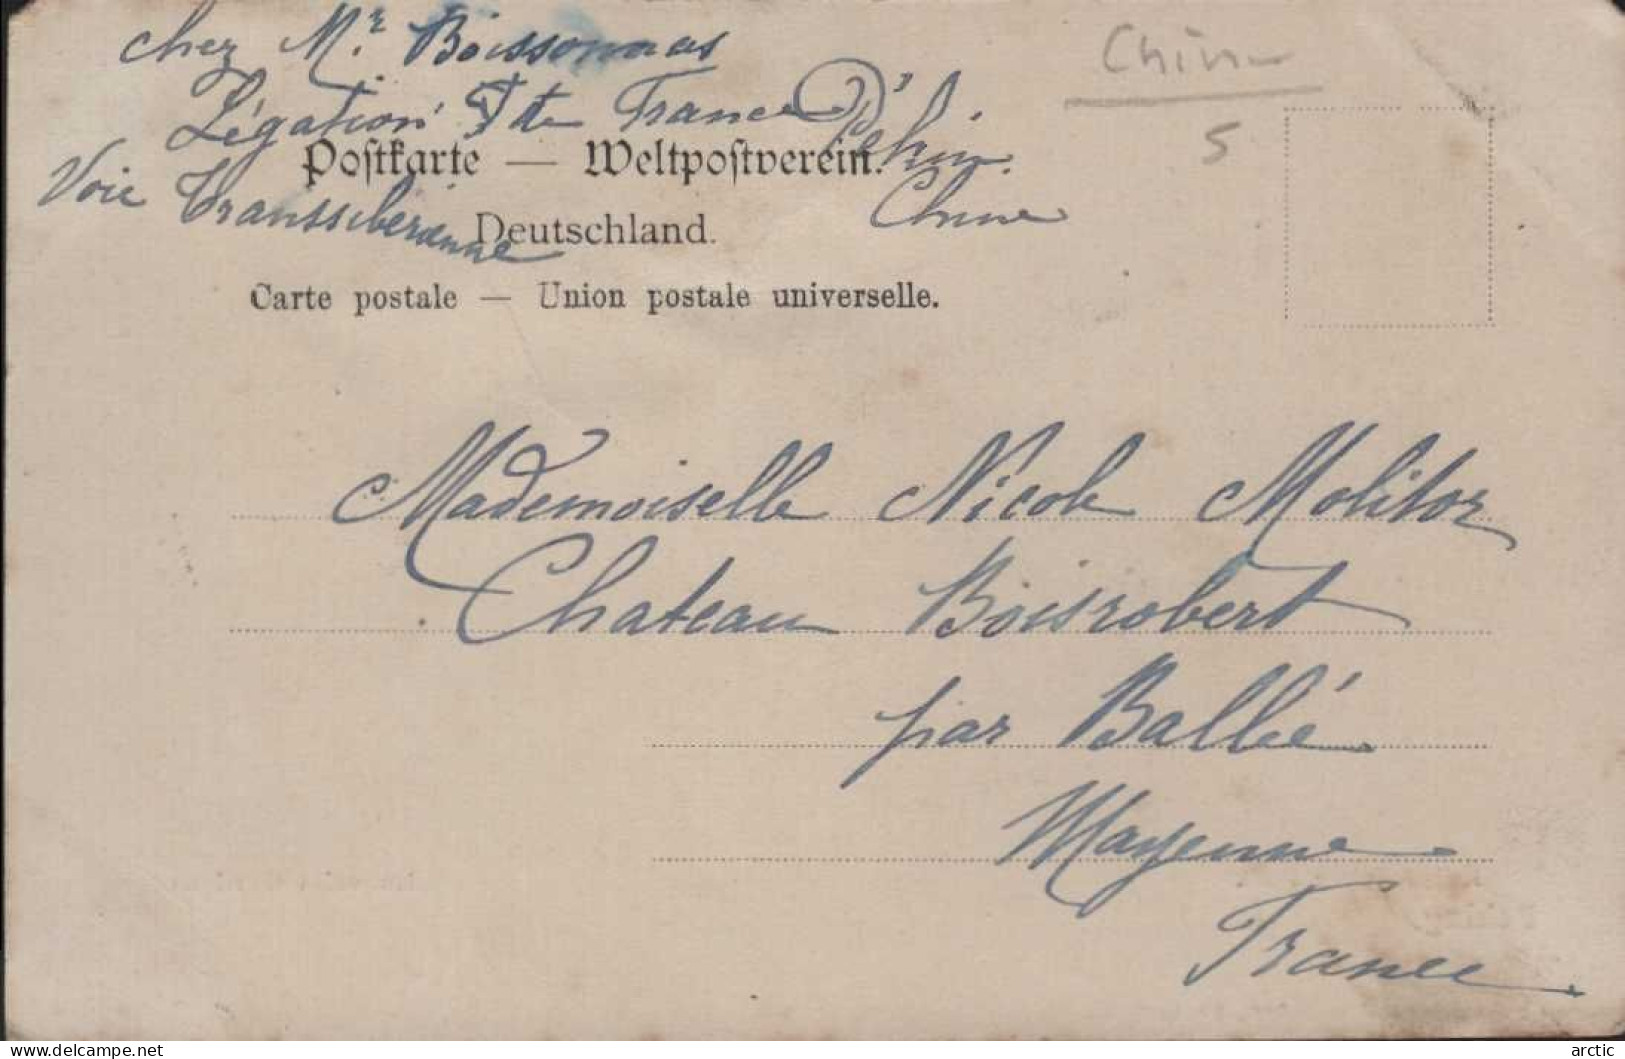 chez Mr. Boissonnas
Légation de France Pékin.
Chine
Voie Transsibérienne
Chine
5
Postkarte — Weltpostverein.
Deutschland.
Carte postale — Union postale universelle.
Mademoiselle Nicole Molitor
Chateau Boisrobert
par Ballée
Mayenne
France
delcampe.net
arctic